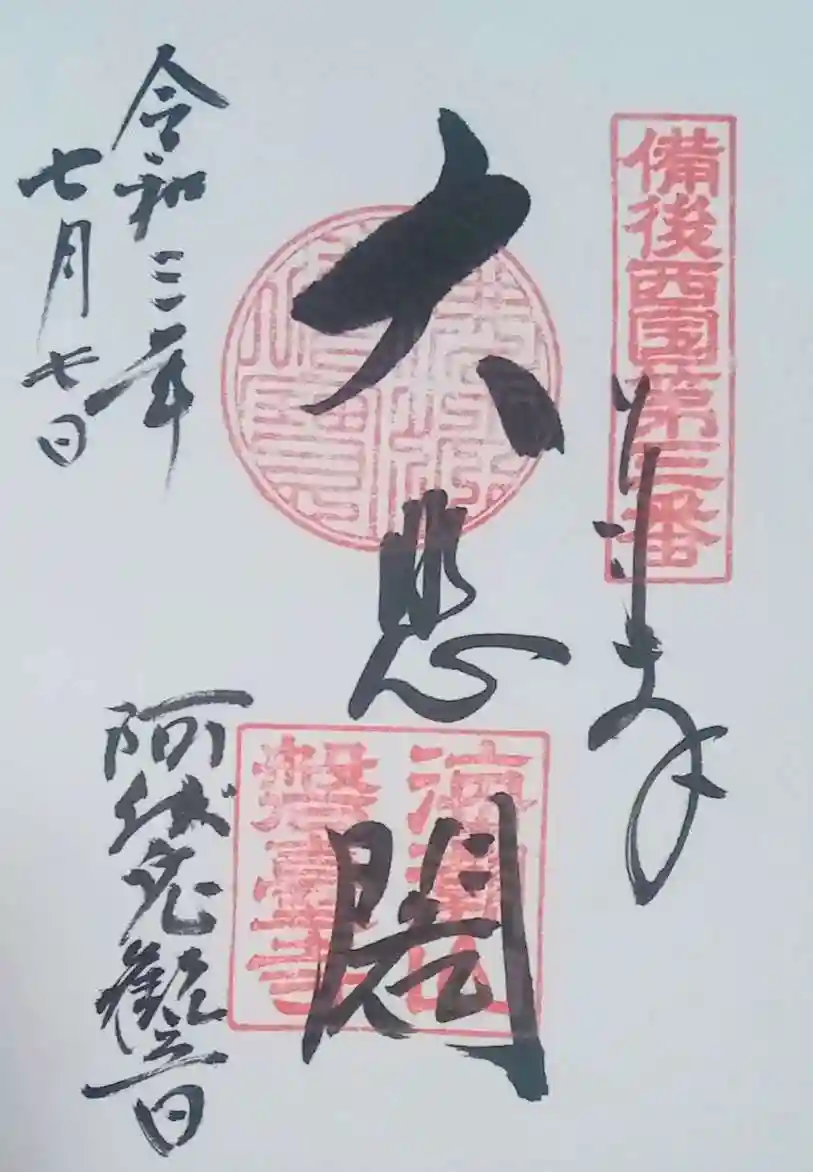 備後西国第三番
奉拝
大悲閣
海潮山
磐台寺
阿伏兎観音
令和三年
七月七日